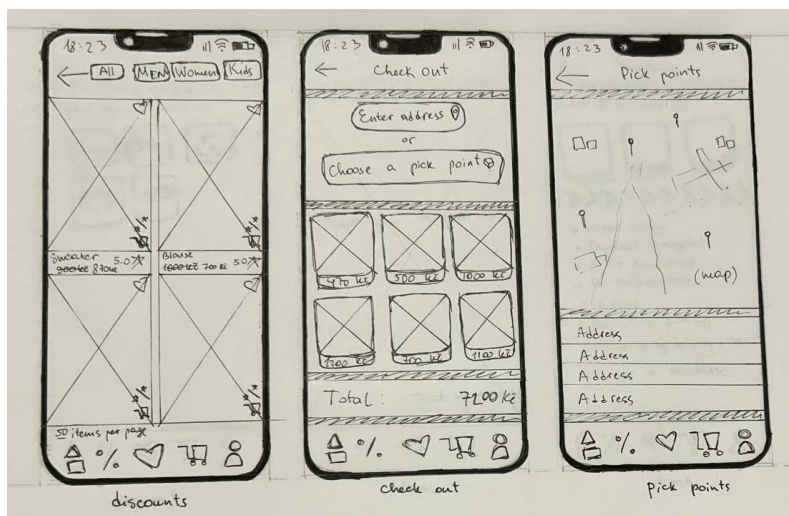 18:23
All MEN Women Kids
Sweater 5.0
900 Kč 870 Kč
Blouse
1000 Kč 700 Kč 5.0
50 items per page
%
discounts
18:23
Check out
Enter address
or
Choose a pick point
470 Kč 500 Kč 1000 Kč
1200 Kč 700 Kč 1100 Kč
Total: 7200 Kč
%
check out
18:23
Pick points
(map)
Address
Address
Address
Address
%
pick points